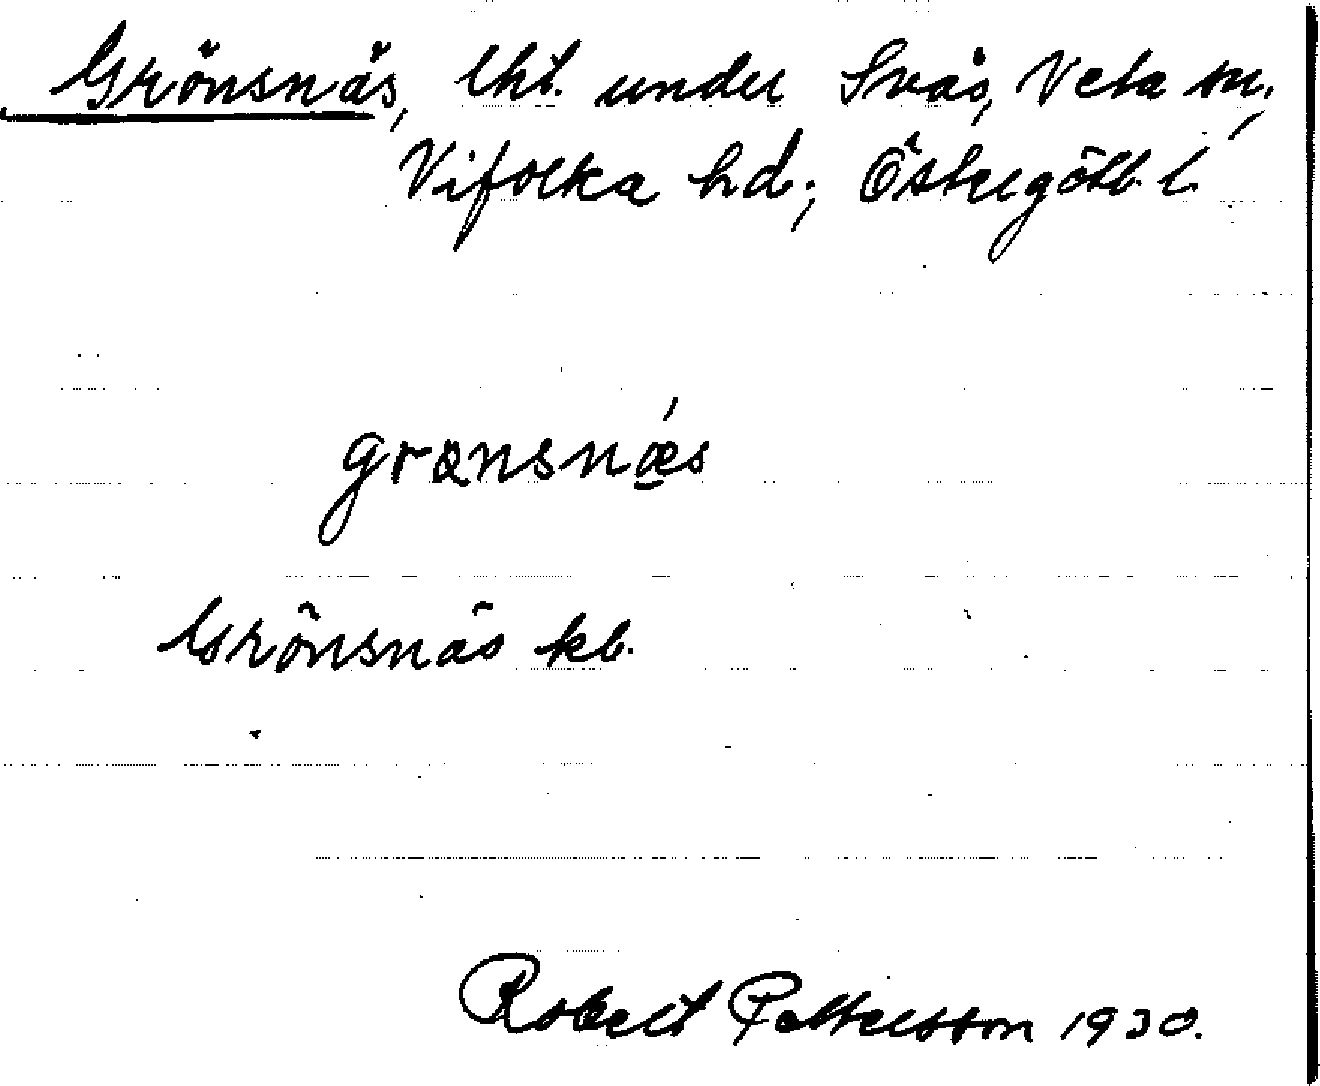 Grönsnäs, lht. under Svås, Veta sn,
Vifolka hd; Östergötl. l.
grønsnǽs
Grönsnäs kb.
Robert Pettersson 1930.